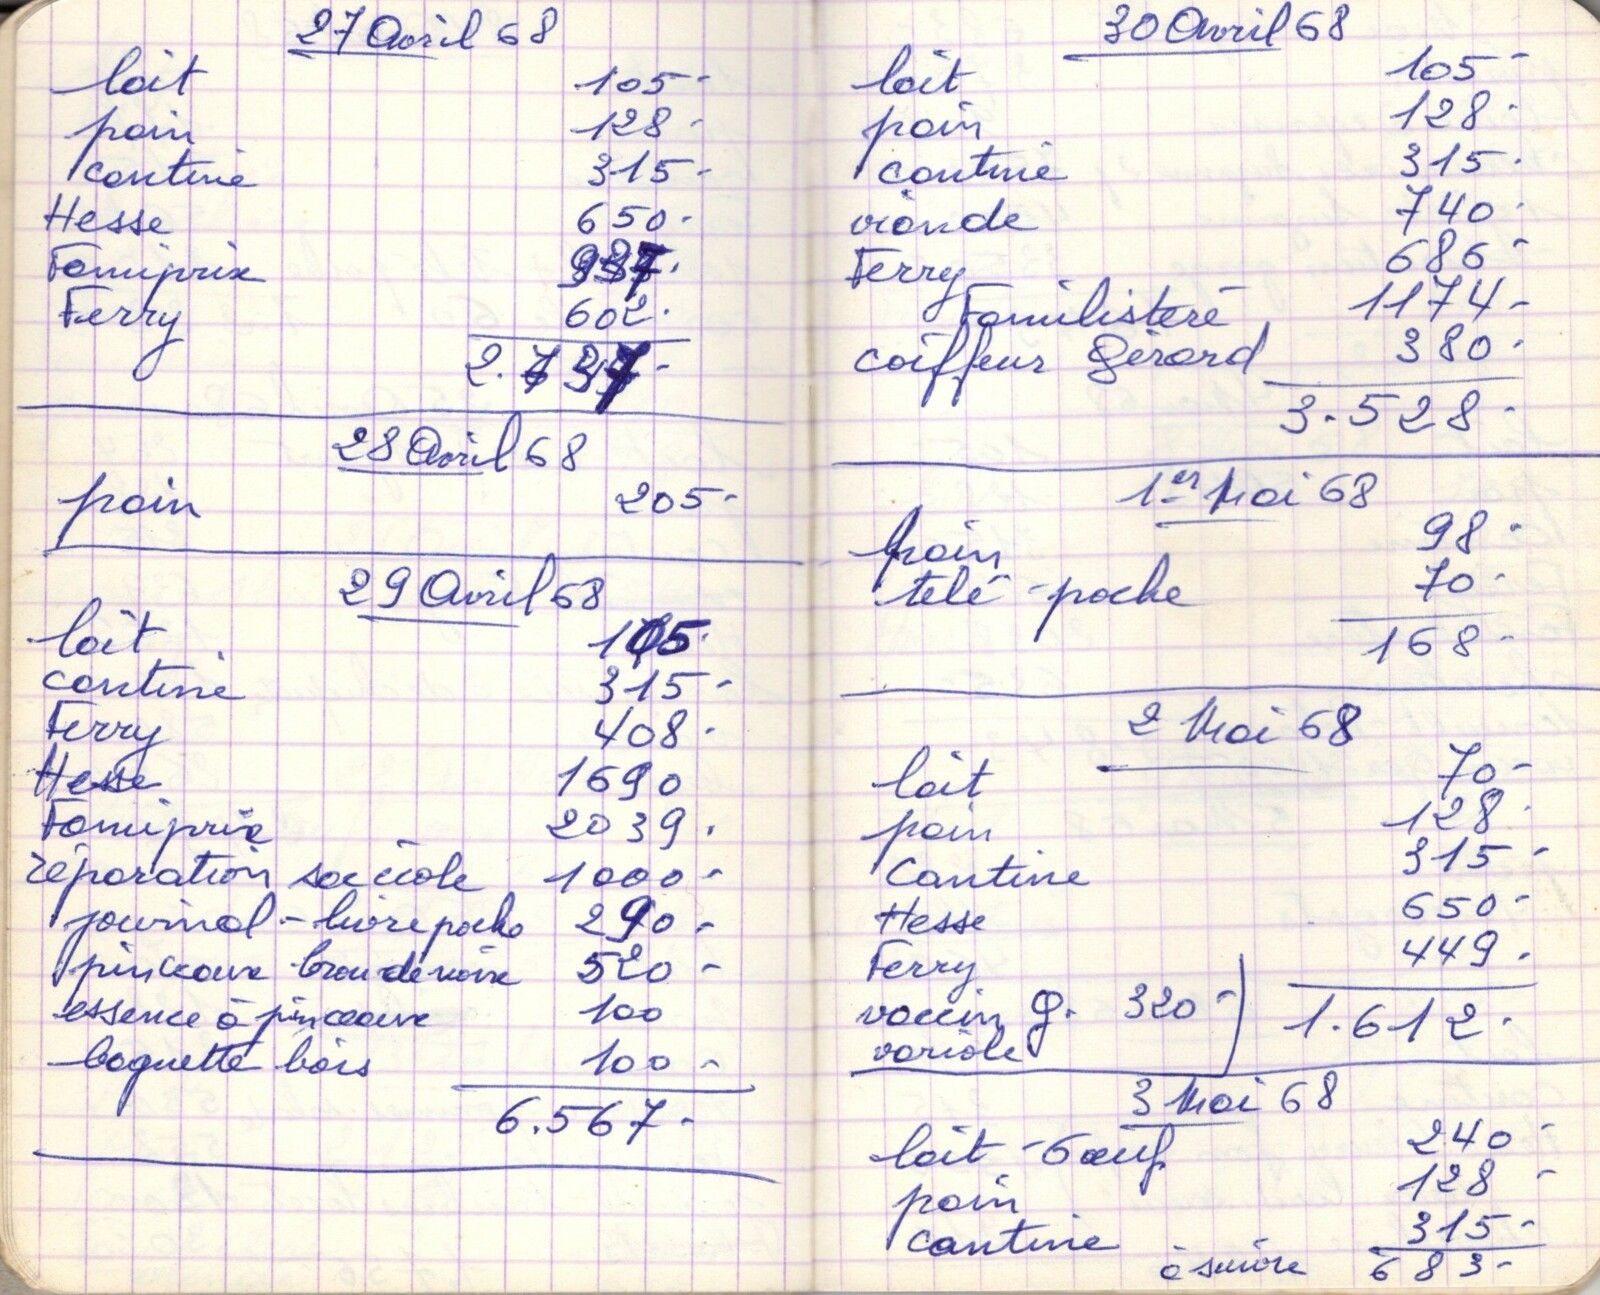 27 Avril 68
lait 105-
pain 128-
cantine 315-
Hesse 650-
Famiprix 937.
Ferry 602.
2.737-
28 Avril 68
pain 205-
29 Avril 68
lait 105.
cantine 315-
Ferry 408.
Hesse 1690
Famiprix 2039.
réparation sacoche 1000-
journal - livre poche 290-
pinceaux brou de noix 520-
essence à pinceaux 100
baguette bois 100-
6.567-
30 Avril 68
lait 105-
pain 128.
cantine 315.
viande 740.
Ferry 686-
Familistère 1174-
coiffeur Gérard 380.
3.528-
1er Mai 68
pain 98.
télé-poche 70.
168-
2 Mai 68
lait 70-
pain 128.
Cantine 315-
Hesse 650-
Ferry 449.
vaccin G. 320-
variole
1.612.
3 Mai 68
lait - 6 œufs 240-
pain 128-
cantine 315-
à suivre 683-